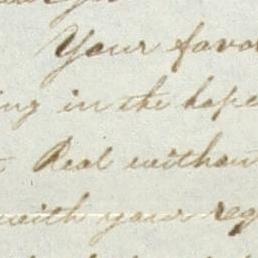 Your favo
ing in the hope
Real withou
with your reg